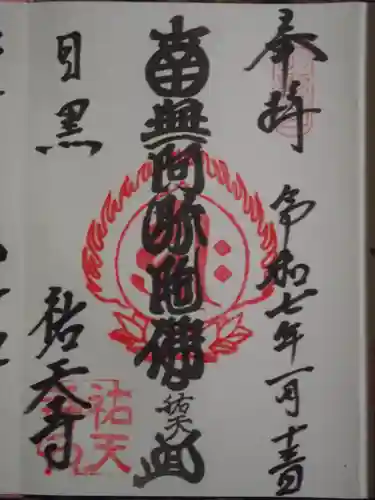 奉拝
令和七年一月十三日
南無阿弥陀佛
祐天
目黒
祐天寺
祐天